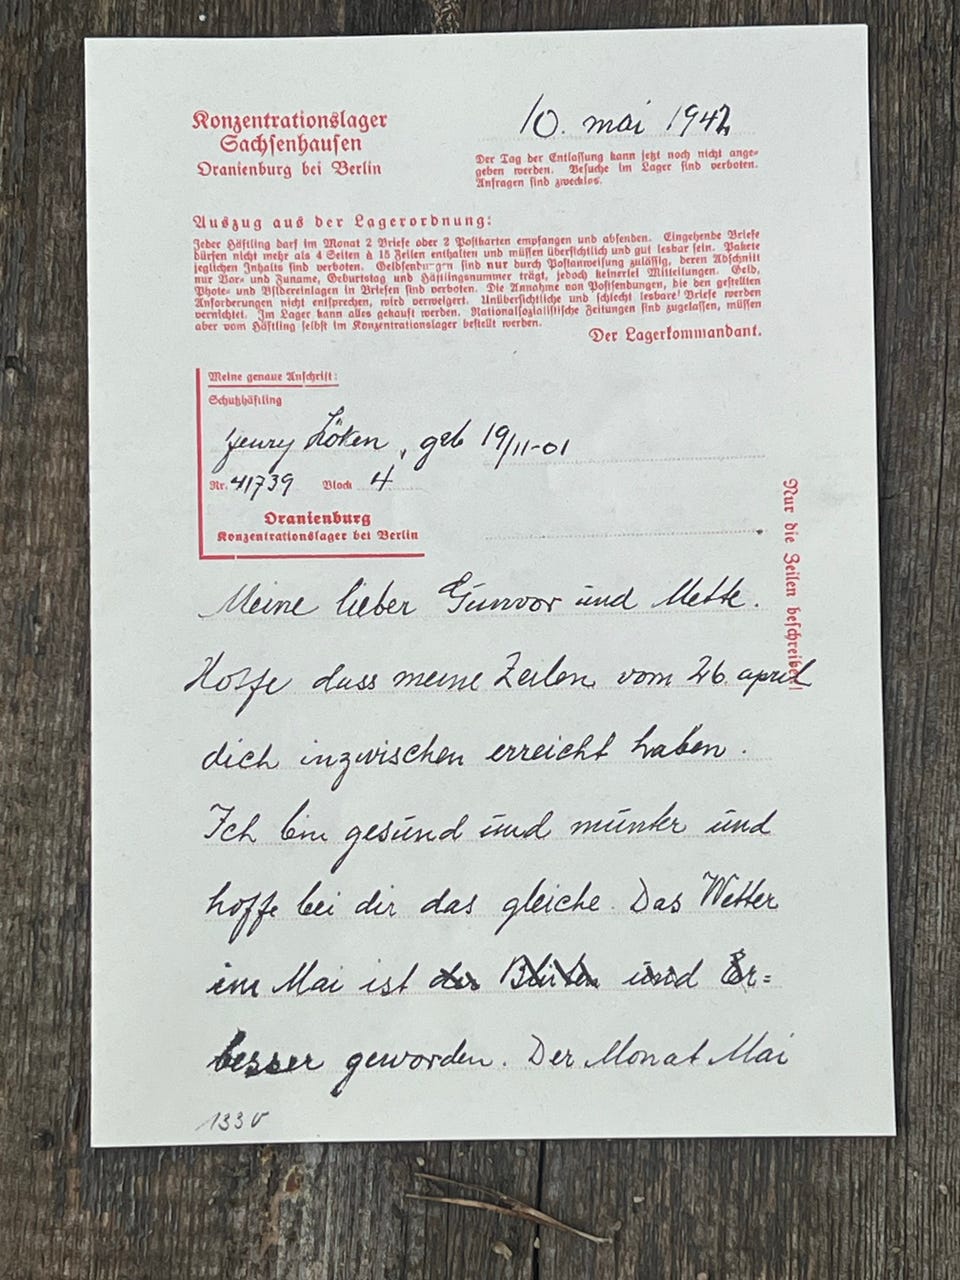 Konzentrationslager
Sachsenhausen
Oranienburg bei Berlin
10. mai 1942
Der Tag der Entlassung kann jetzt noch nicht ange-
geben werden. Besuche im Lager sind verboten.
Anfragen sind zwecklos.
Auszug aus der Lagerordnung:
Jeder Häftling darf im Monat 2 Briefe oder 2 Postkarten empfangen und absenden. Eingehende Briefe
dürfen nicht mehr als 4 Seiten à 15 Zeilen enthalten und müssen übersichtlich und gut lesbar sein. Pakete
jeglichen Inhalts sind verboten. Geldsendungen sind nur durch Postanweisung zulässig, deren Abschnitt
nur Vor- und Zuname, Geburtstag und Häftlingsnummer trägt, jedoch keinerlei Mitteilungen. Geld,
Photo- und Bildereinlagen in Briefen sind verboten. Die Annahme von Postsendungen, die den gestellten
Anforderungen nicht entsprechen, wird verweigert. Unübersichtliche und schlecht lesbare Briefe werden
vernichtet. Im Lager kann alles gekauft werden. Nationalsozialistische Zeitungen sind zugelassen, müssen
aber vom Häftling selbst im Konzentrationslager bestellt werden.
Der Lagerkommandant.
Meine genaue Anschrift:
Schutzhäftling
geb 19/11-01
Nr. 41739 Block 4
Oranienburg
Konzentrationslager bei Berlin
Nur die Zeilen beschreiben!
Meine lieber Gunvor und Mette.
Hoffe dass meine Zeilen vom 26. april
dich inzwischen erreicht haben.
Ich bin gesund und munter und
hoffe bei dir das gleiche. Das Wetter
im Mai ist der Blüten und Er=
besser geworden. Der Monat Mai
133 v